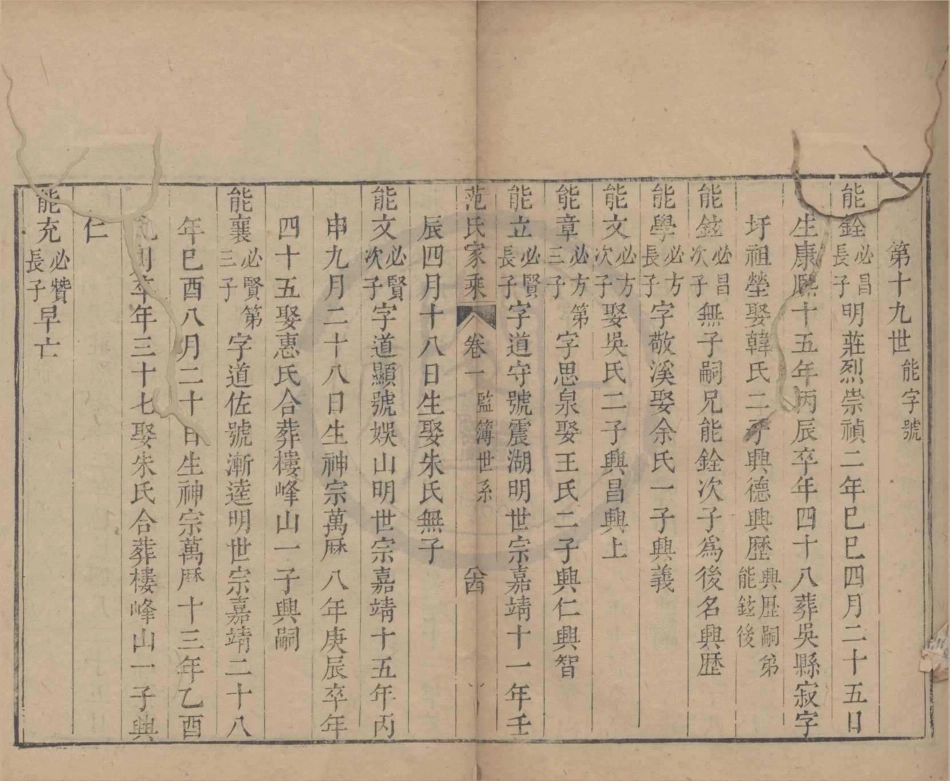 第十九世能字號
能銓必昌長子明莊烈崇禎二年巳巳四月二十五日
生康熙十五年丙辰卒年四十八葬吳縣寂字
圩祖塋娶韓氏二子興德興歷興歷嗣弟能鉉後
能鉉必昌次子無子嗣兄能銓次子為後名興歷
能學必方長子字敬溪娶余氏一子興義
能文必方次子娶吳氏二子興昌興上
能章必方第三子字思泉娶王氏二子興仁興智
能立必賢長子字道守號震湖明世宗嘉靖十一年壬
范氏家乘 卷一 監簿世系
辰四月十八日生娶朱氏無子
能文必賢次子字道顯號娛山明世宗嘉靖十五年丙
申九月二十八日生神宗萬曆八年庚辰卒年
四十五娶惠氏合葬樓峰山一子興嗣
能襄必賢第三子字道佐號漸達明世宗嘉靖二十八
年巳酉八月二十日生神宗萬曆十三年乙酉
卒年三十七娶朱氏合葬樓峰山一子興
仁
能充必贊長子早亡